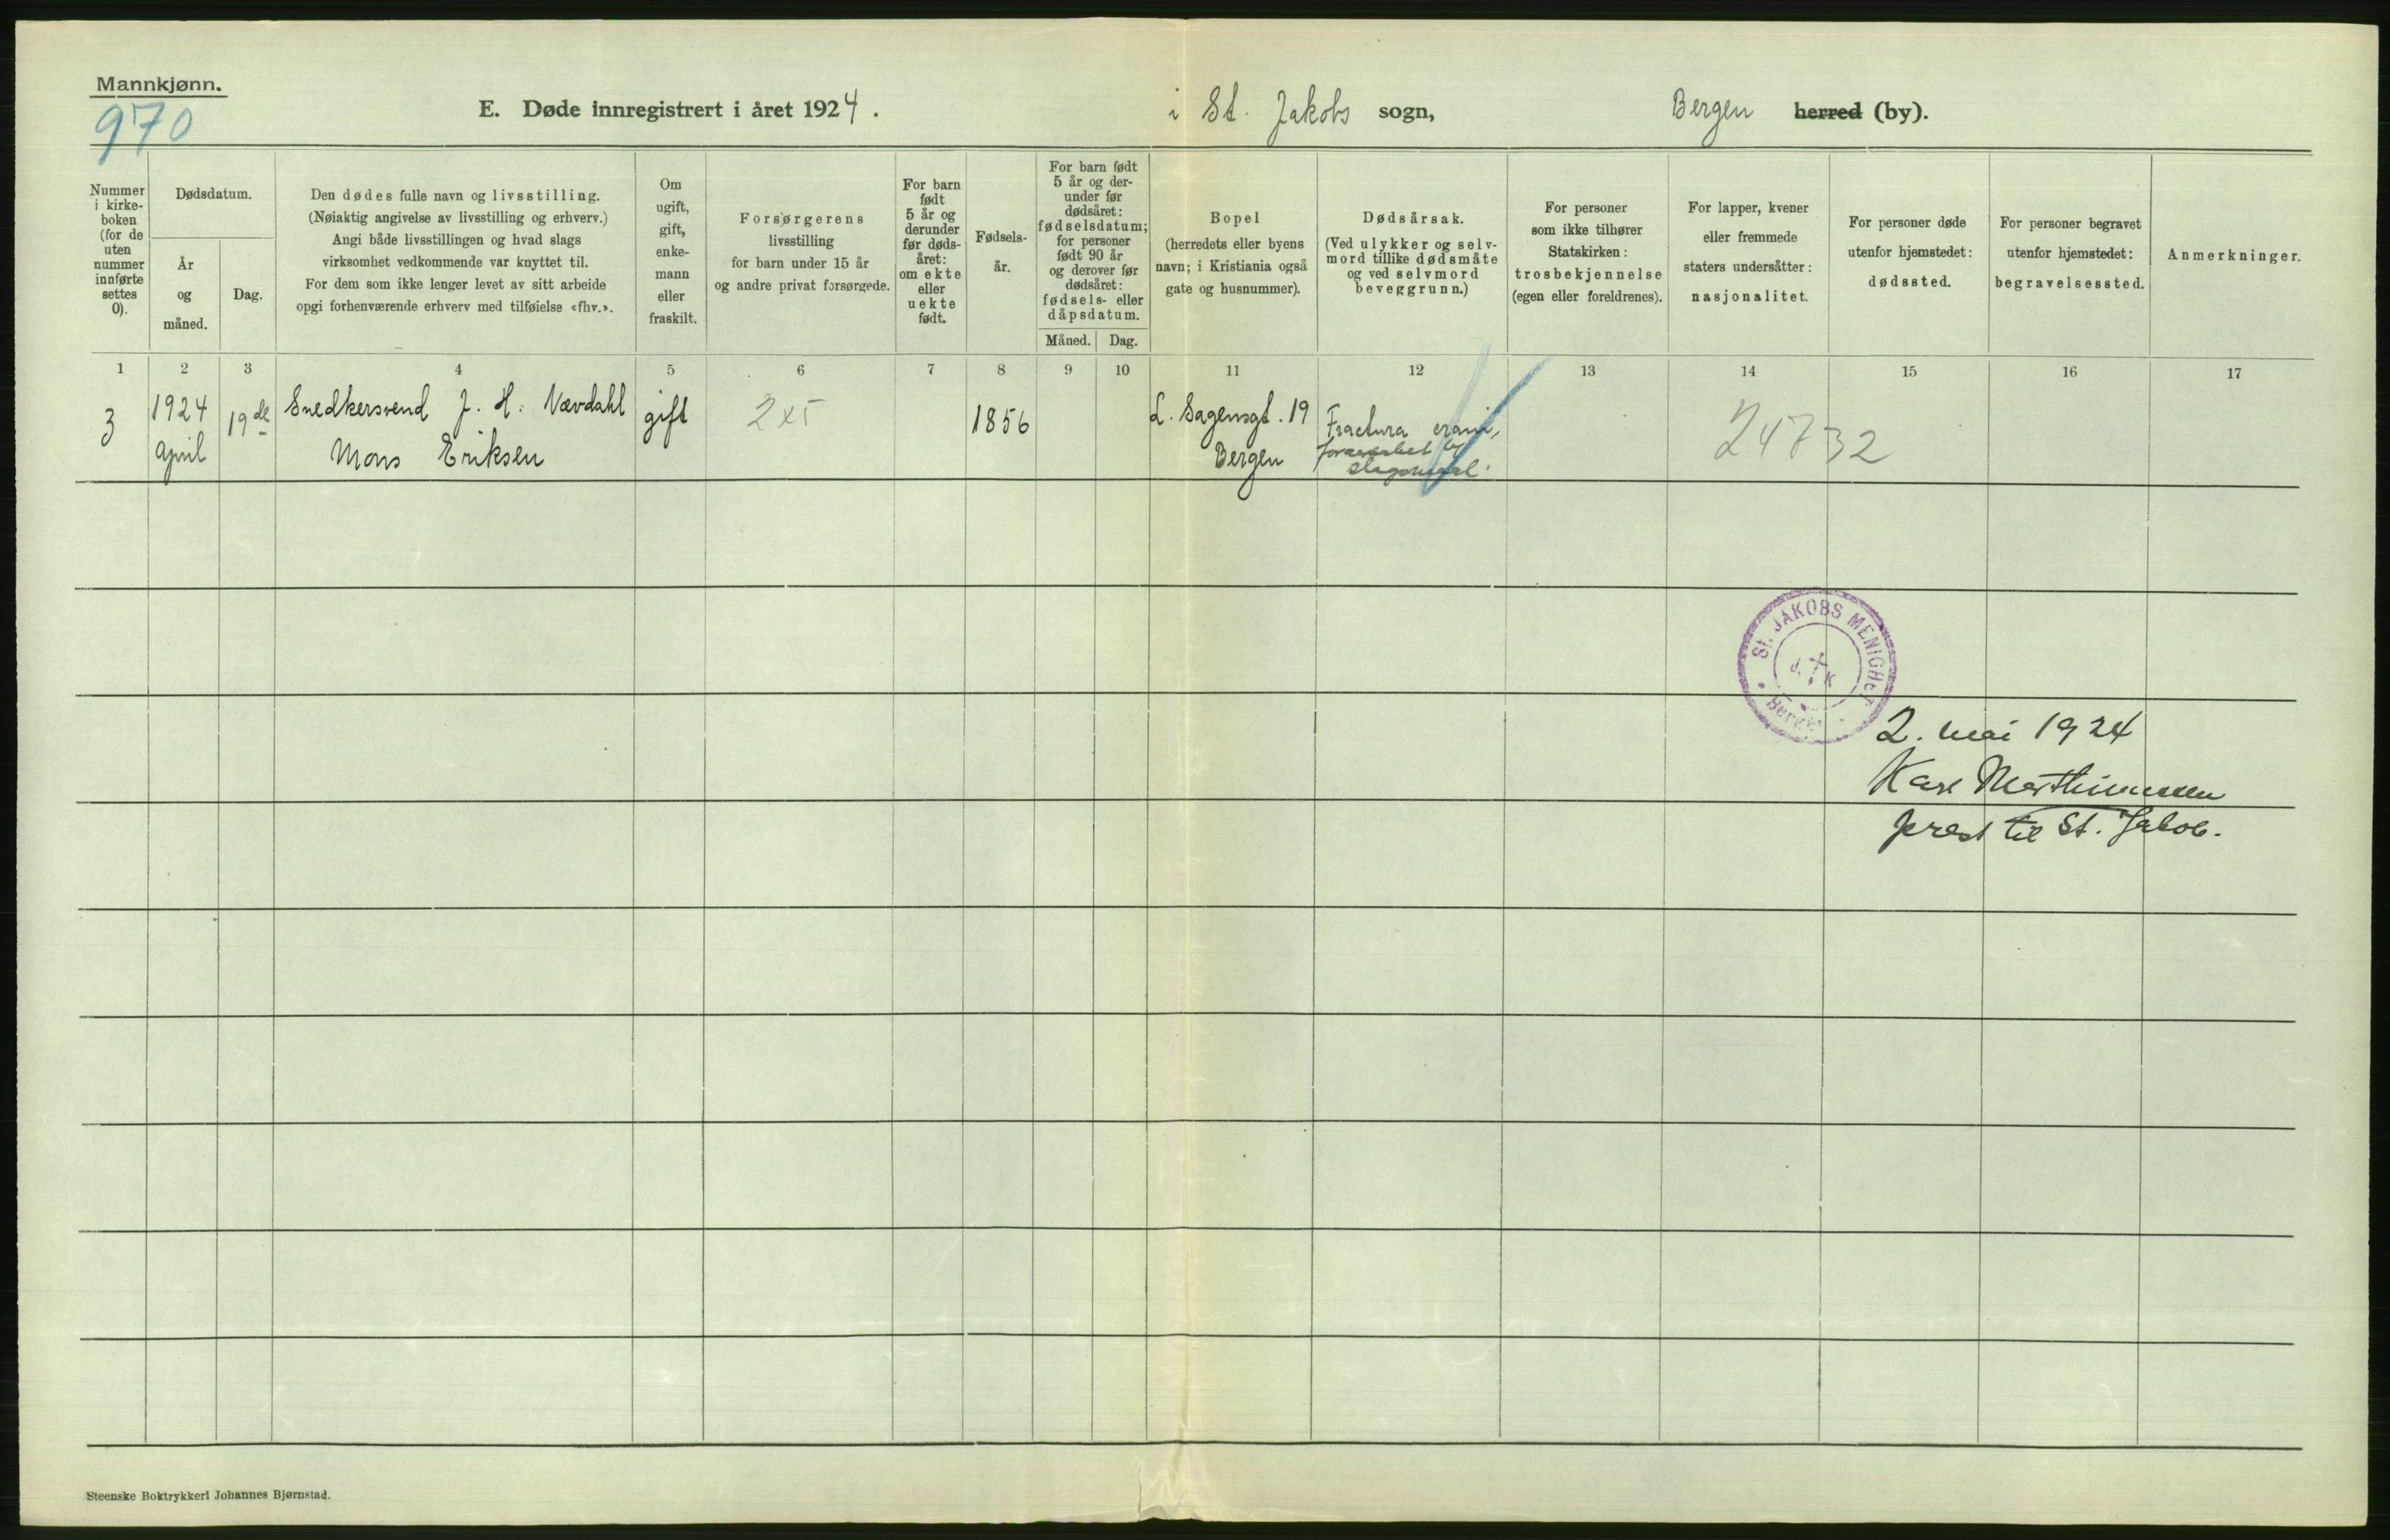 Mannkjønn.
970
E. Døde innregistrert i året 1924.
i St. Jakobs sogn,
Bergen herred (by).
Nummer
i kirke-
boken
(for de
uten
nummer
innførte
settes
0).
Dødsdatum.
År
og
måned.
Dag.
Den dødes fulle navn og livsstilling.
(Nøiaktig angivelse av livsstilling og erhverv.)
Angi både livsstillingen og hvad slags
virksomhet vedkommende var knyttet til.
For dem som ikke lenger levet av sitt arbeide
opgi forhenværende erhverv med tilføielse «fhv.».
Om
ugift,
gift,
enke-
mann
eller
fraskilt.
Forsørgerens
livsstilling
for barn under 15 år
og andre privat forsørgede.
For barn
født
5 år og
derunder
før døds-
året:
om ekte
eller
uekte
født.
Fødsels-
år.
For barn født
5 år og der-
under før
dødsåret:
fødselsdatum;
for personer
født 90 år
og derover før
dødsåret:
fødsels- eller
dåpsdatum.
Måned.
Dag.
Bopel
(herredets eller byens
navn; i Kristiania også
gate og husnummer).
Dødsårsak.
(Ved ulykker og selv-
mord tillike dødsmåte
og ved selvmord
beveggrunn.)
For personer
som ikke tilhører
Statskirken:
trosbekjennelse
(egen eller foreldrenes).
For lapper, kvener
eller fremmede
staters undersåtter:
nasjonalitet.
For personer døde
utenfor hjemstedet:
dødssted.
For personer begravet
utenfor hjemstedet:
begravelsessted.
Anmerkninger.
1 2 3 4 5 6 7 8 9 10 11 12 13 14 15 16 17
3
1924
April
19de
Snedkersvend J. H. Nævdahl
Mons Eriksen
gift
2x5
1856
L. Sagensgt. 19
Bergen
Fractura cranii,
24732
St. JAKOBS MENIGHET
J. K
Bergen
2. mai 1924
Karl Marthinussen
prest til St. Jakob.
Steenske Boktrykkeri Johannes Bjørnstad.